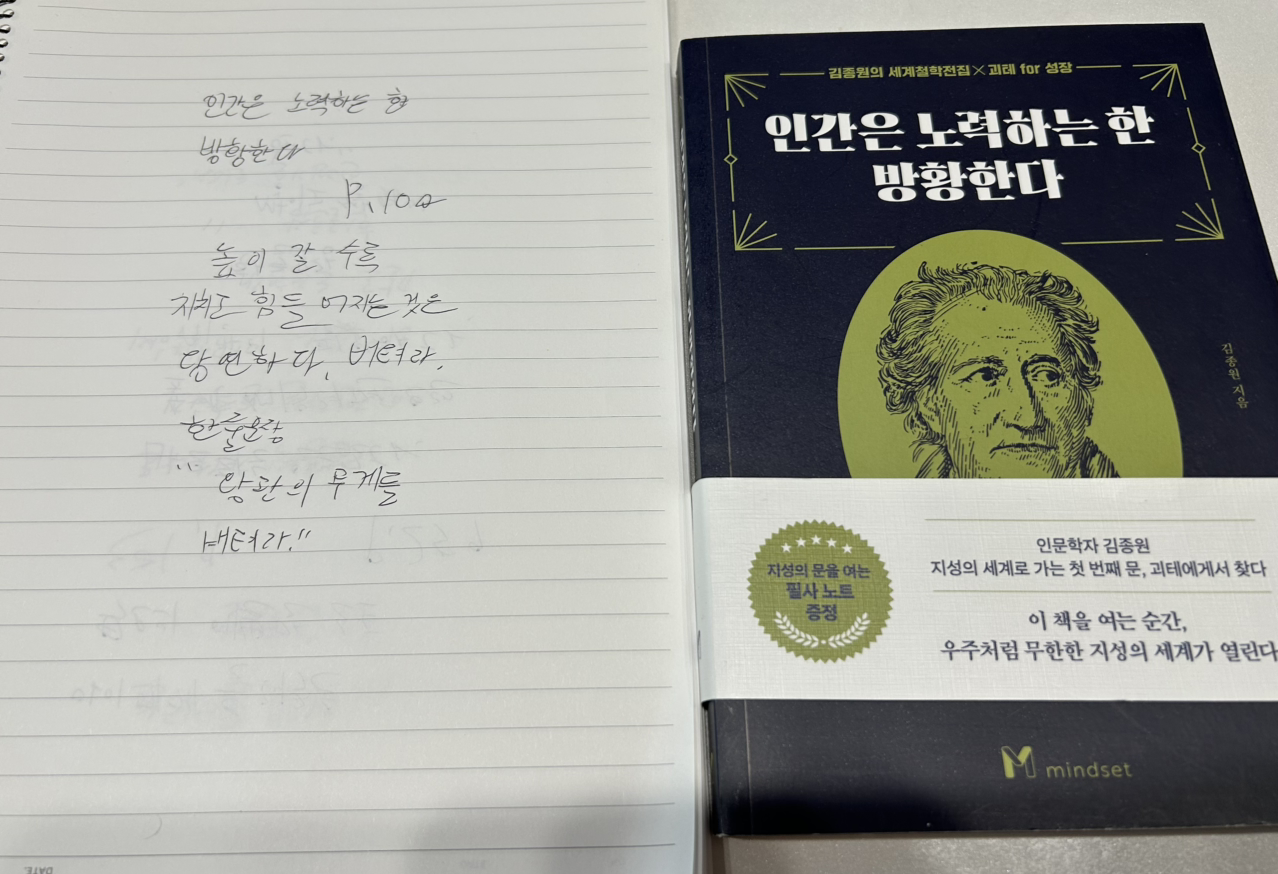 인간은 노력하는 한
방황한다
P.100
높이 갈 수록
지치고 힘들어지는 것은
당연하다, 버텨라.
한줄요약
"왕관의 무게를
버텨라."
김종원의 세계철학전집×괴테 for 성장
인간은 노력하는 한
방황한다
김종원 지음
지성의 문을 여는
필사 노트
증정
인문학자 김종원
지성의 세계로 가는 첫 번째 문, 괴테에게서 찾다
이 책을 여는 순간,
우주처럼 무한한 지성의 세계가 열린다
M mindset